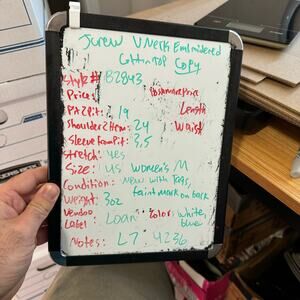 Jcrew V Neck Embroidered
Cotton Top Copy
Style# B2843
Price:
Poshmark Price
Pit2Pit: 19
Length
Shoulder2Hem: 24
Waist
Sleeve From Pit: 3.5
Stretch: yes
Size: US Women's M
Condition: New with Tags,
faint mark on back
Weight: 3oz
Vendoo Label: Loan
Color: White,
blue
Notes: L7 4236